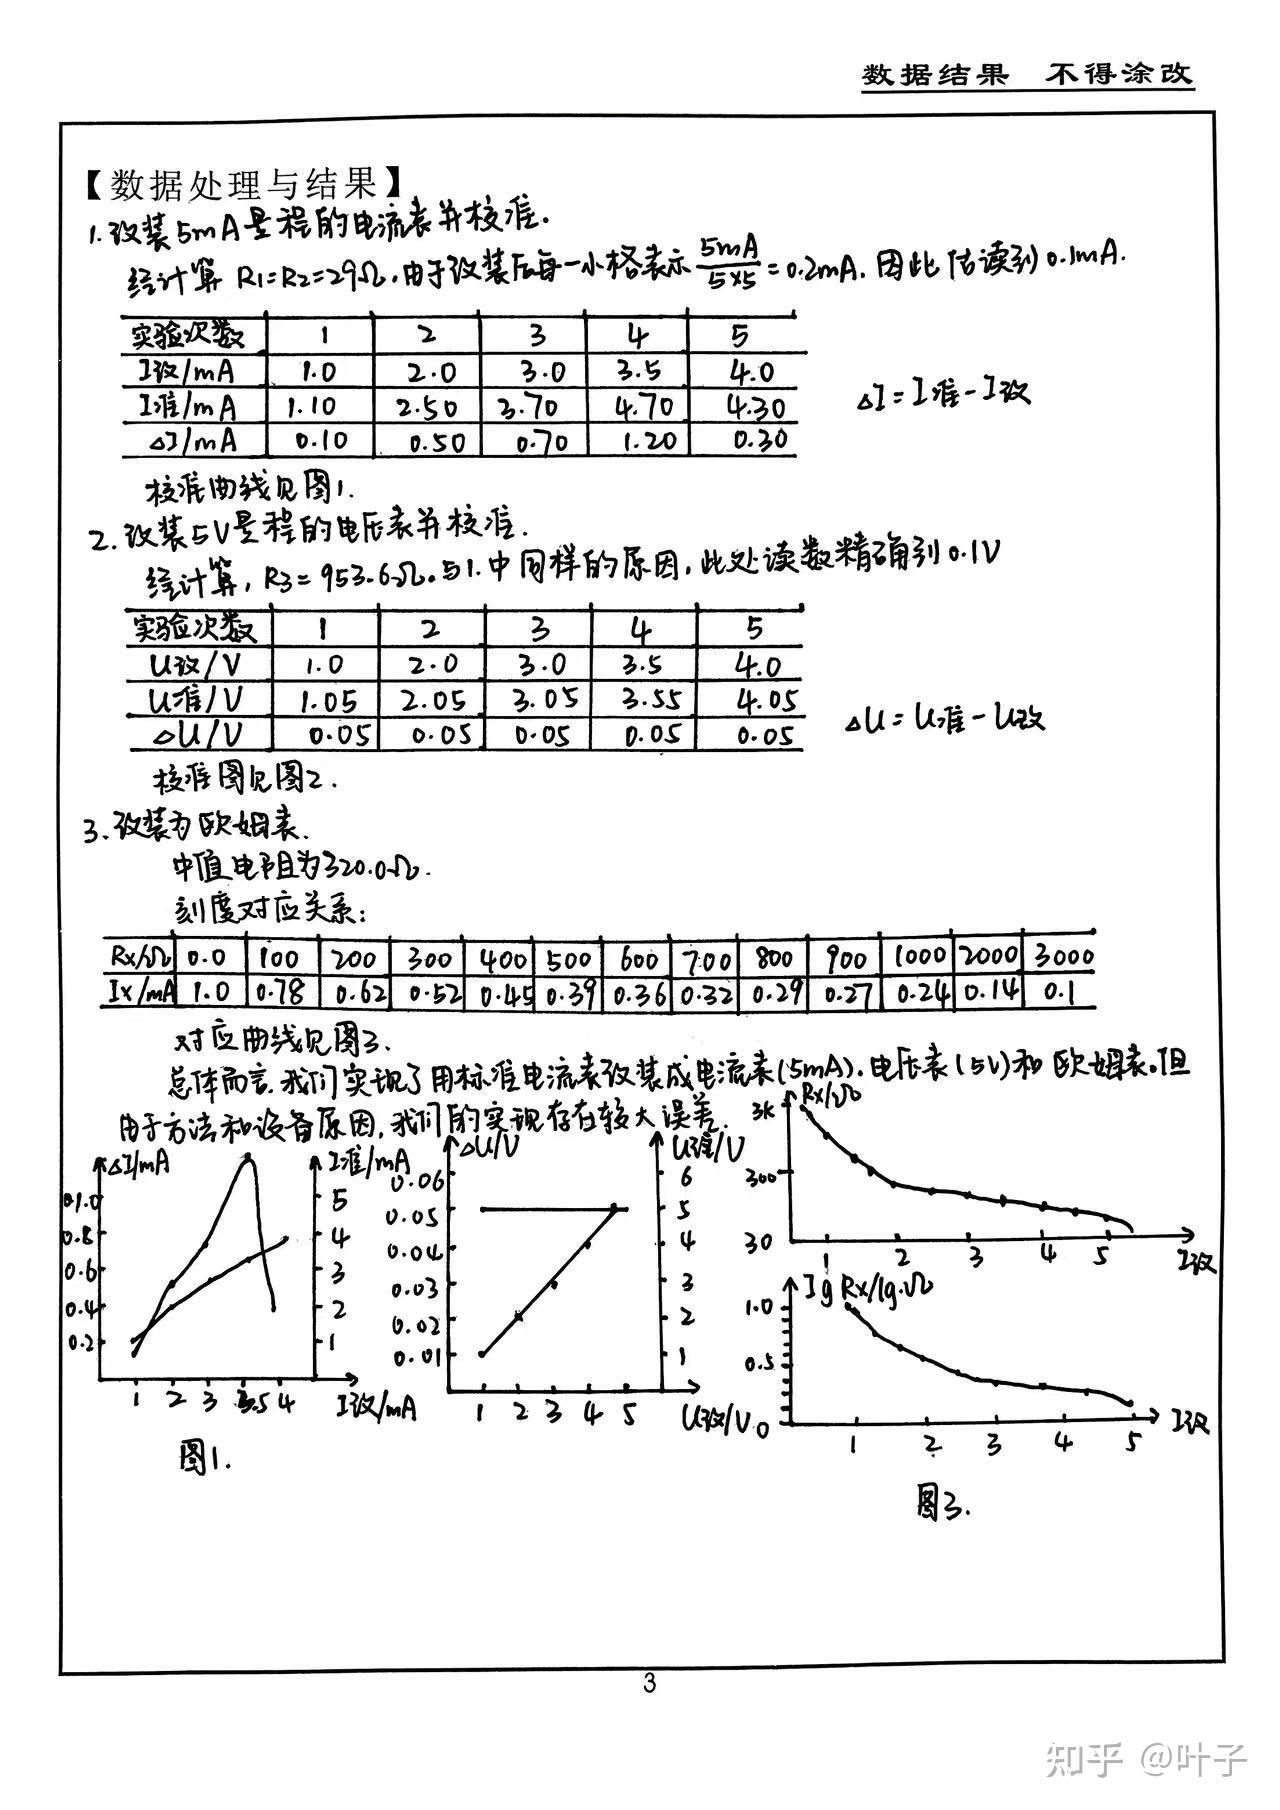 数据结果 不得涂改
【数据处理与结果】
1.改装5mA量程的电流表并校准.
经计算 R1=R2=29Ω.由于改装后每一小格表示 5mA/5×5 =0.2mA,因此估读到0.1mA.
实验次数 1 2 3 4 5
I改/mA 1.0 2.0 3.0 3.5 4.0
I准/mA 1.10 2.50 3.70 4.70 4.30
ΔI/mA 0.10 0.50 0.70 1.20 0.30
ΔI=I准-I改
校准曲线见图1.
2.改装5V量程的电压表并校准.
经计算,R3=953.6Ω.与1.中同样的原因,此处读数精确到0.1V
实验次数 1 2 3 4 5
U改/V 1.0 2.0 3.0 3.5 4.0
U准/V 1.05 2.05 3.05 3.55 4.05
ΔU/V 0.05 0.05 0.05 0.05 0.05
ΔU=U准-U改
校准图见图2.
3.改装为欧姆表.
中值电阻为320.0Ω.
刻度对应关系:
Rx/Ω 0.0 100 200 300 400 500 600 700 800 900 1000 2000 3000
Ix/mA 1.0 0.78 0.62 0.52 0.45 0.39 0.36 0.32 0.29 0.27 0.24 0.14 0.1
对应曲线见图3.
总体而言,我们实现了用标准电流表改装成电流表(5mA).电压表(5V)和欧姆表。但
由于方法和设备原因,我们的实现存在较大误差.
ΔI/mA
1.0
0.8
0.6
0.4
0.2
I准/mA
5
4
3
2
1
1 2 3 3.5 4 I改/mA
图1.
ΔU/V
0.06
0.05
0.04
0.03
0.02
0.01
U准/V
6
5
4
3
2
1
1 2 3 4 5 U改/V
Rx/Ω
3k
300
30
1 2 3 4 5 I改
Ig Rx/lg.Ω
1.0
0.5
0
1 2 3 4 5 I改
图3.
3
知乎 @叶子